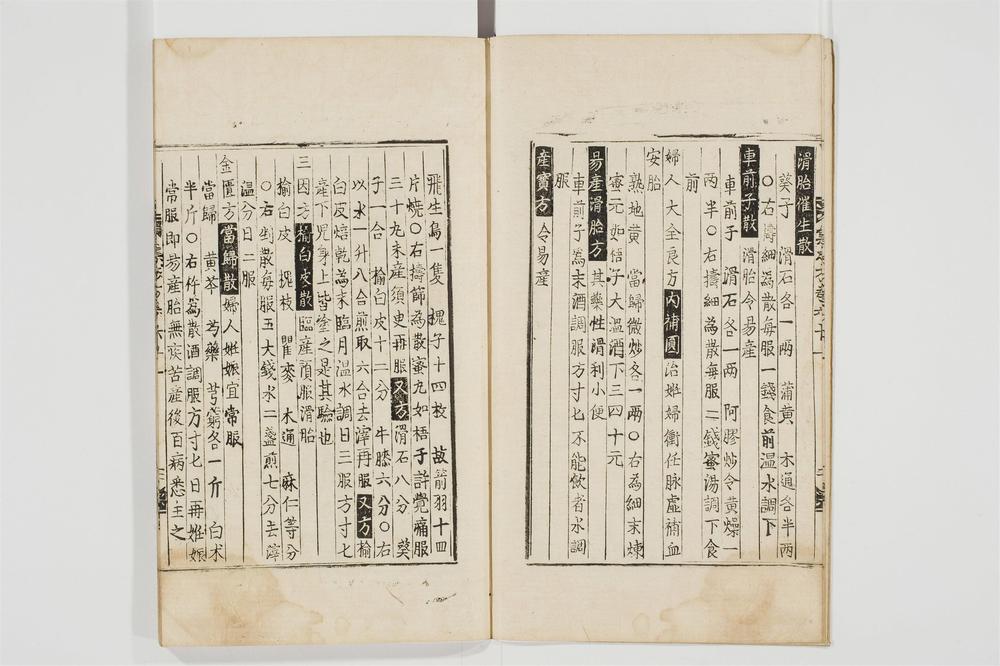 滑胎催生散
葵子　滑石各一兩　蒲黄　木通各半兩
○右擣細為散每服一錢食前温水調下
車前子散　滑胎令易産
車前子　滑石各一兩　阿膠炒令黄燥一
兩半○右擣細為散每服二錢蜜湯調下食
前
婦人大全良方内補圓治姙婦衝任脉虚補血
安胎
熟地黄　當歸微炒各一兩○右為細末煉
蜜元如梧子大温酒下三四十元
易産滑胎方　其藥性滑利小便
車前子為末酒調服方寸匕不能飲者水調
服
産寳方　令易産
飛生鳥一隻　槐子十四枚　故箭羽十四
片燒○右擣篩為散蜜丸如梧子許覺痛服
三十九未産須臾再服又方滑石八分　葵
子一合　榆白皮十二分　牛膝六分○右
以水一升八合煎取六合去滓再服又方榆
白皮焙乾為末臨月温水調日三服方寸匕
産下児身上皆塗之是其驗也
三因方榆白皮散臨産預服滑胎
榆白皮　桃枝　瞿麥　木通　麻仁等分
○右剉散每服五大錢水二盞煎七分去滓
温分日二服
金匱方當歸散婦人姙娠宜常服
當歸　黄芩　芍藥　芎藭各一斤　白术
半斤○右杵為散酒調服方寸匕日再姙娠
常服即昜産胎無疾苦産後百病悉主之